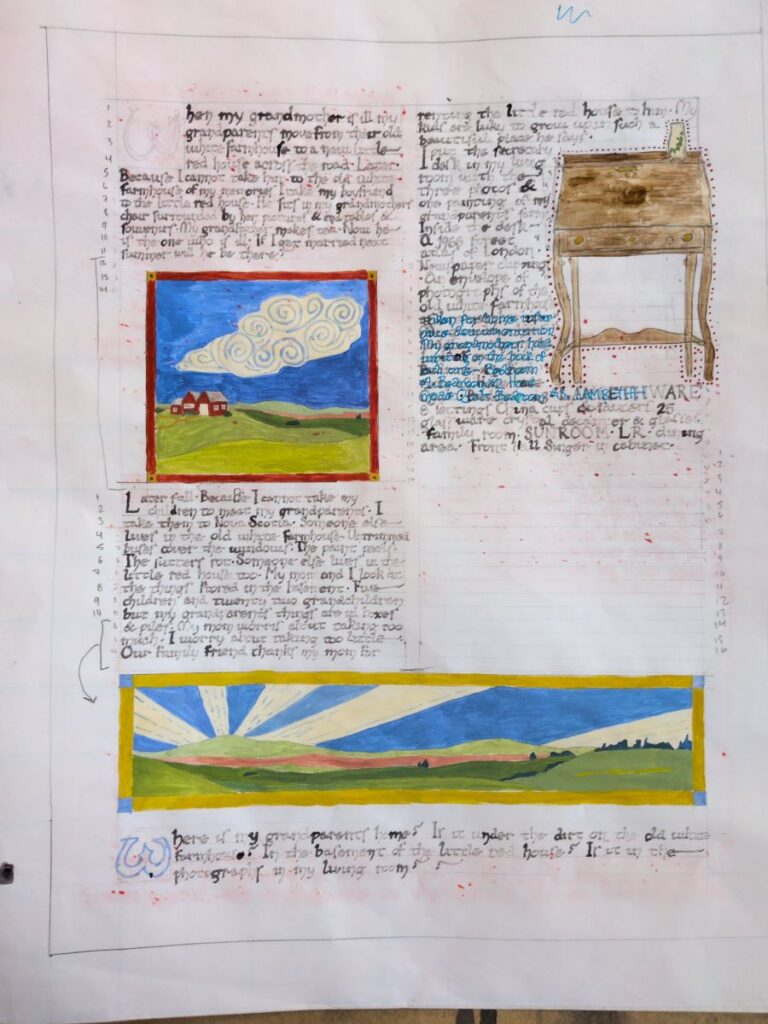 When my grandmother is ill my
grandparents move from their old
white farmhouse to a new little
red house across the road. Later.
Because I cannot take her to the old white
farmhouse of my memories I take my boyfriend
to the little red house. He sits in my grandmothers
chair surrounded by her pictures & end tables &
souvenirs. My grandfather makes tea. Now he
is the one who is ill. If I get married next
summer will he be there?
Later still. Because I cannot take my
children to meet my grandparents. I
take them to Nova Scotia. Someone else
lives in the old white farmhouse. Untrimmed
buses cover the windows. The paint peels.
The gutters rot. Someone else lives in the
little red house too. My mom and I look at
the things stored in the basement. Five
children and twenty two grandchildren
but my grandparents things are in boxes
& piles. My mom worries about taking too
much. I worry about taking too little
Our family friend thanks my mom for
renting the little red house to him. My
kids are luky to grow up in such a
beautiful place he says.
I put the secretary
desk in my living
room with the
three photos &
one painting of my
grandparents farm.
Inside the desk
a 1966 street
atlas of London.
Newspaper clippings
An envelope of
photographs of the
old white farmhouse
taken for
My grandmothers hand
on the back of
Bedroom
LAMBETHH WARE
settings China cups & saucers 25
glass ware crystal decanter & glasses
family room. SUNROOM. L.R. dining
area. Front Hall Singer in cabinet.
Where is my grandparents home? Is it under the dirt on the old white
farmhouse? In the basement of the little red house? Is it in the
photographs in my living room?